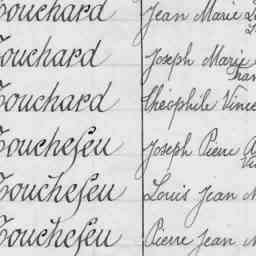 Touchard Jean Marie
Touchard Joseph Marie
Touchard Théophile
Touchefeu Joseph Pierre
Touchefeu Louis Jean
Touchefeu Pierre Jean